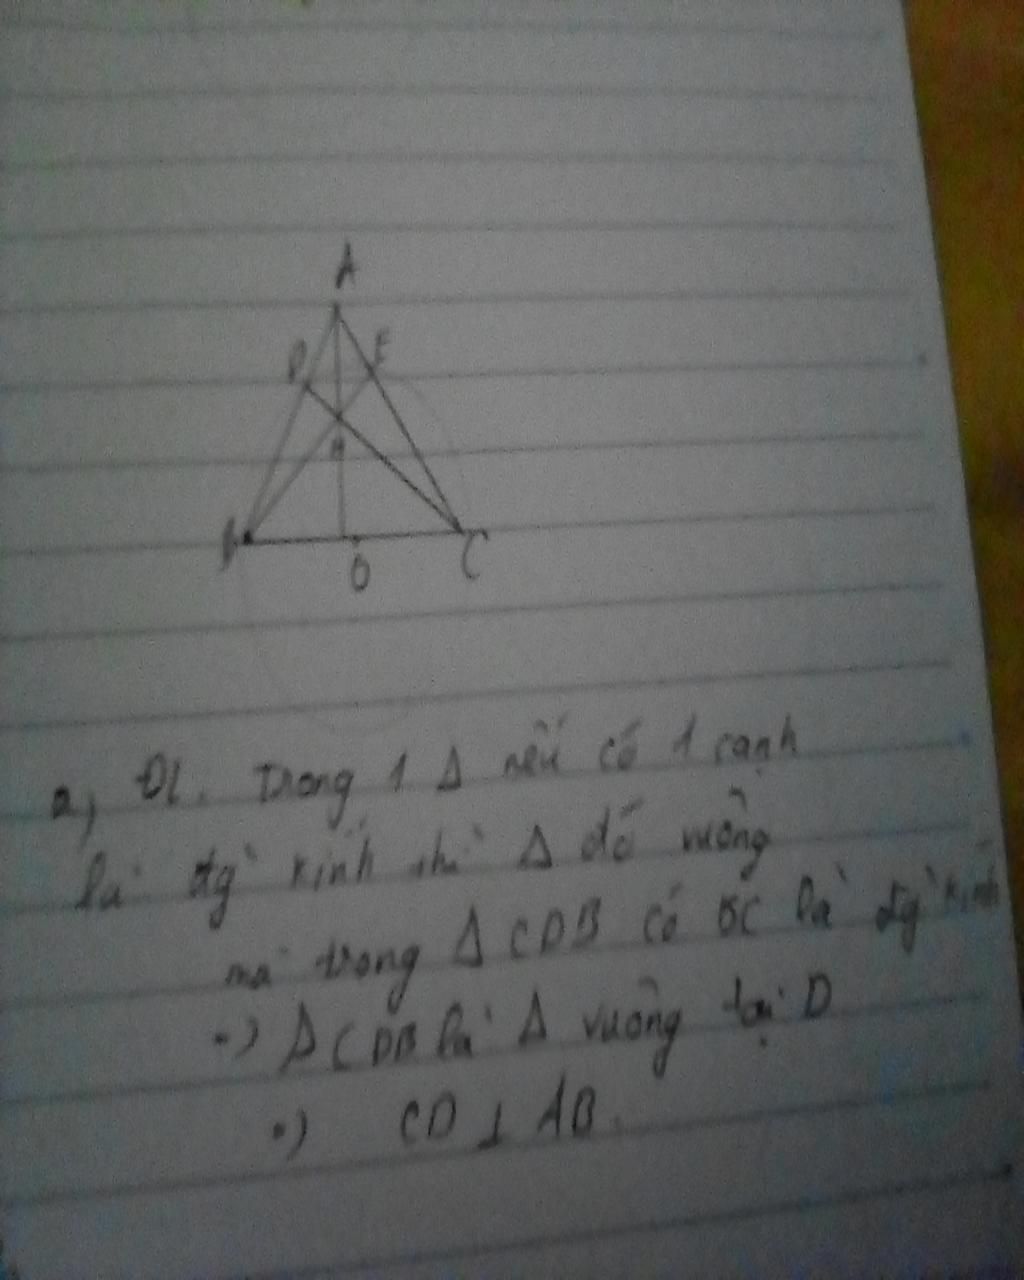 A
D E
H
B O C
a, ĐL. Trong 1 Δ nếu có 1 cạnh
là đg` kính thì Δ đó vuông
mà trong Δ CDB có BC là đg` kính
=) Δ CDB là Δ vuông tại D
=) CD ⊥ AB.